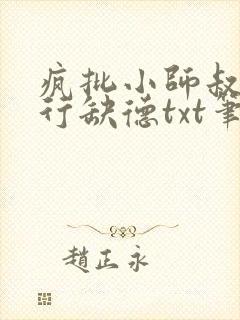 疯批小师叔
行缺德txt筆
趙正永